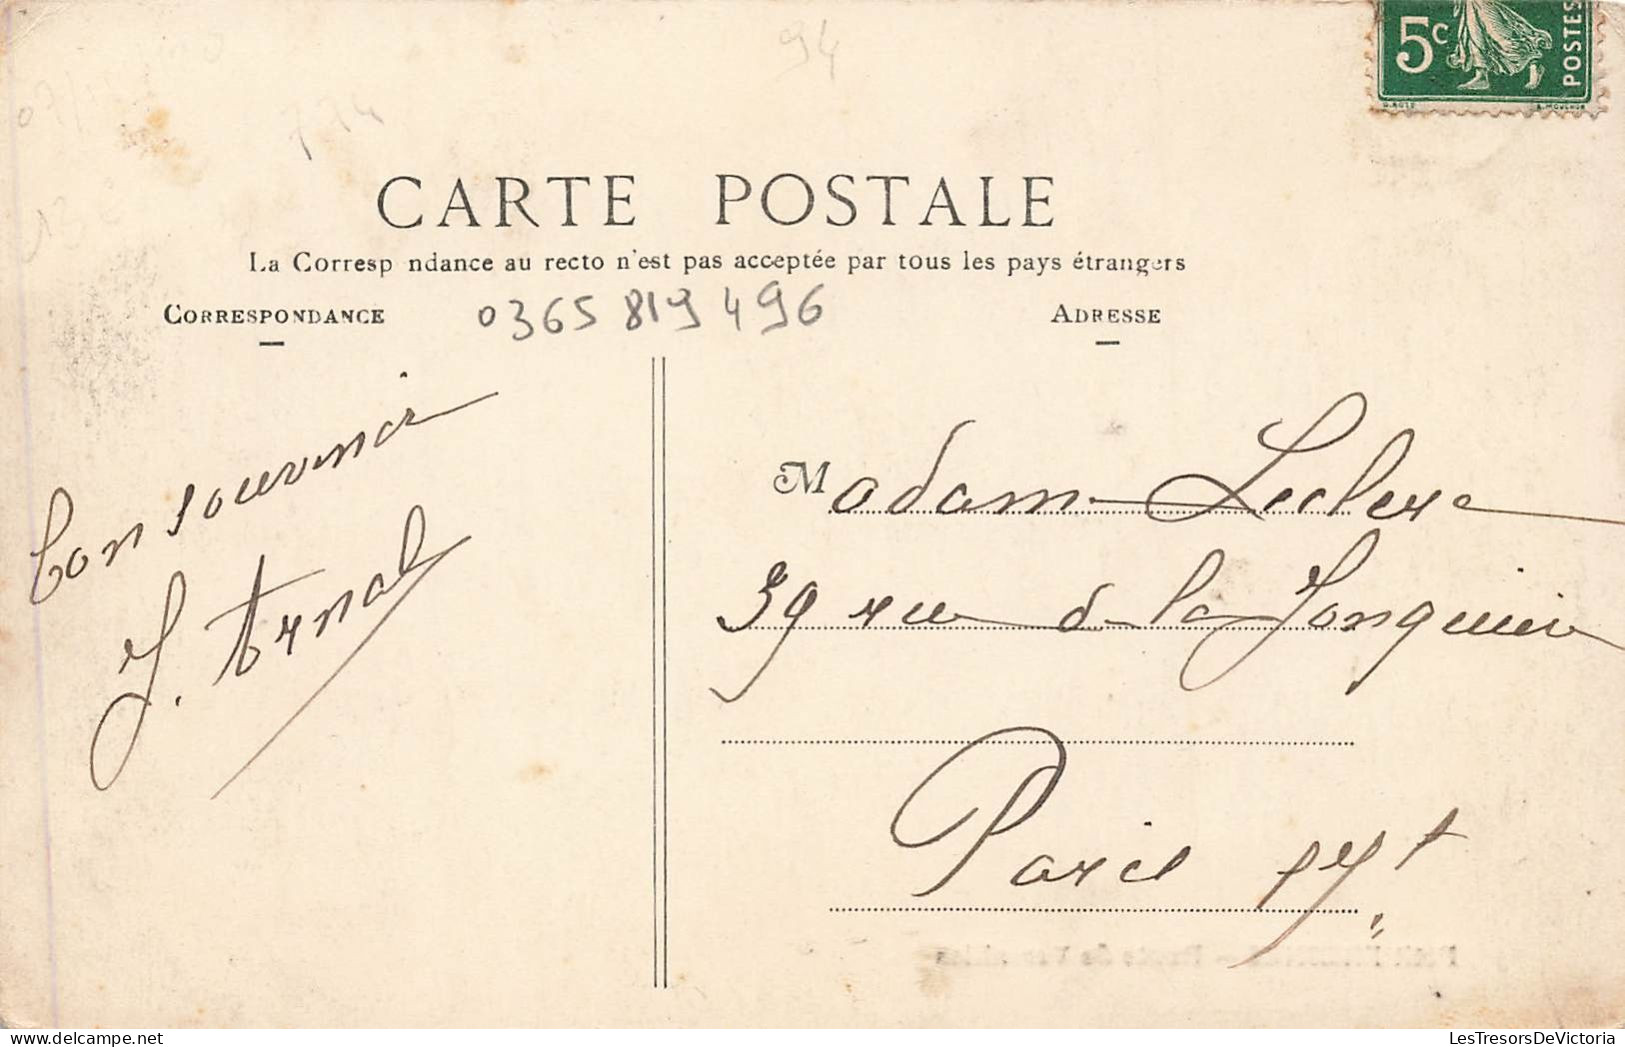 94
5c POSTES
774
CARTE POSTALE
La Corresp ndance au recto n'est pas acceptée par tous les pays étrangers
CORRESPONDANCE
0365 819 496
ADRESSE
bon souvenir
J. Arnal
Madame Leclerc
39 rue de la Jonquière
Paris 17
LesTresorsDeVictoria